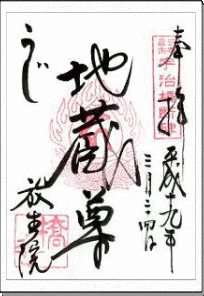 奉拝
平成十九年
三月二十四日
地蔵尊
うじ
放生院
橋